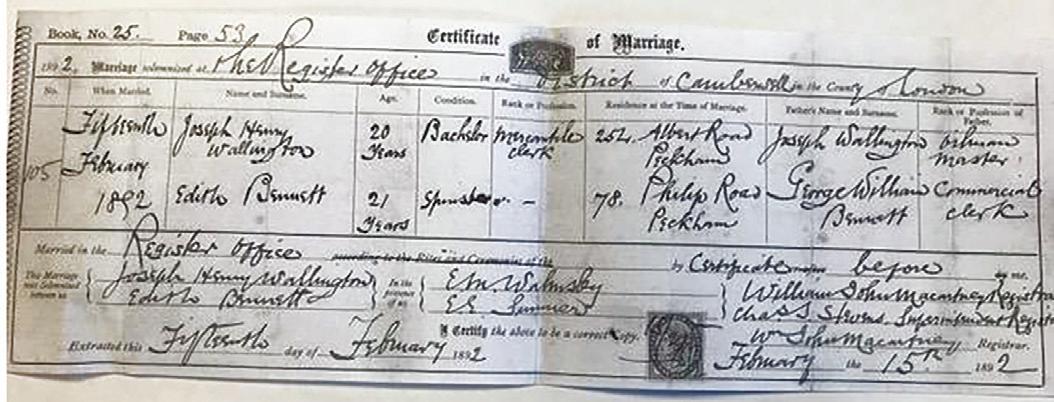 Book, No. 25. Page 53. Certificate of Marriage.
1892. Marriage solemnized at The Register Office in the District of Camberwell in the County of London
No. When Married. Name and Surname. Age. Condition. Rank or Profession. Residence at the Time of Marriage. Father's Name and Surname. Rank or Profession of Father.
105
Fifteenth February 1892
Joseph Henry Wallington 20 Years Bachelor Mercantile clerk 252. Albert Road Peckham Joseph Wallington oilman master
Edith Bennett 21 Years Spinster - 78. Philip Road Peckham George William Bennett Commercial clerk
Married in the Register Office according to the Rites and Ceremonies of the by Certificate before by me,
The Marriage was solemnized between us
Joseph Henry Wallington
Edith Bennett
In the presence of us
E M Walmsby
E E
William John Macartney Registrar
Chas S. Stevens. Superintendent Registr
I Certify the above to be a correct Copy.
Wm John Macartney Registrar.
Extracted this Fifteenth day of February 1892
February the 15th 1892